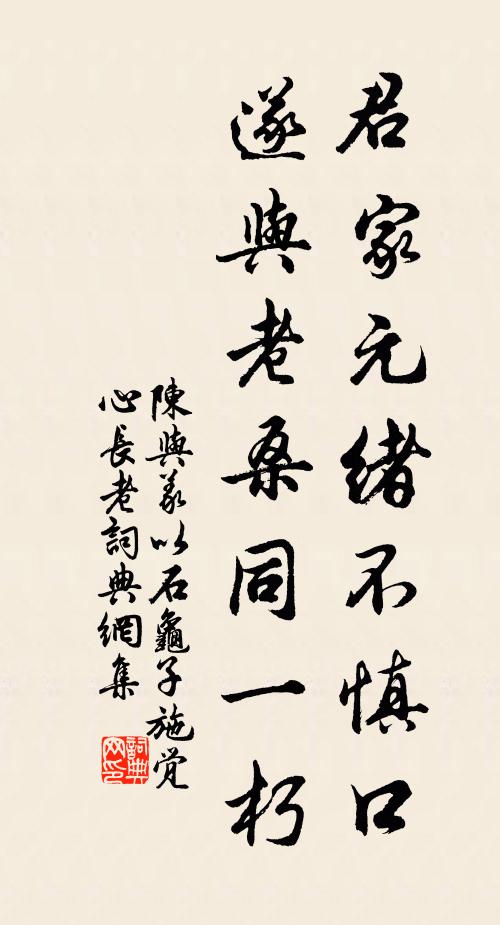 君家元緒不慎口
遂與老桑同一朽
陳與義以石龜子施覺
心長老詞典網集
詞典
网印